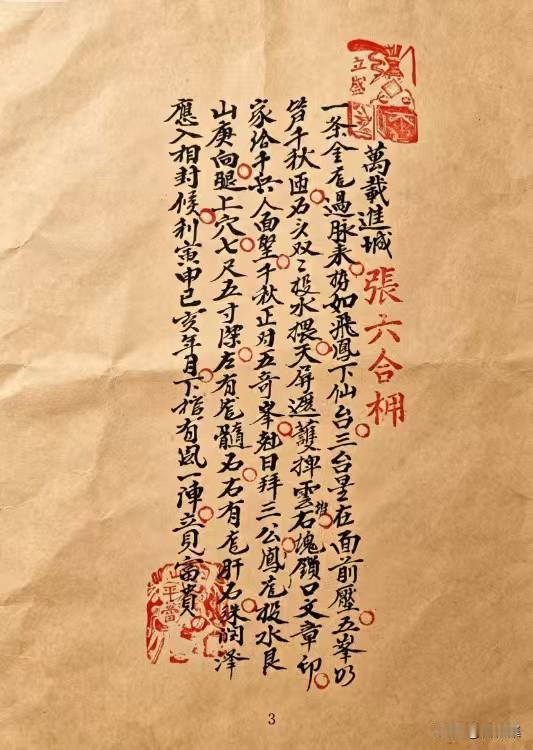 萬載進城
張六合
一条金龙過脉来势如飛鳳下仙台三台星在面前壓五峯
笏千秋石双々投水天屏遮護雲右塊鎖口文章印
家给千兵人面千秋正对五奇峯日拜三公鳳龙投水艮
山庚向腿上穴七尺五寸深左有龙髓石右有龙肝石珠润泽
應入相封候利寅申巳亥年月下棺有風一陣立見富貴
立盛
平當
3